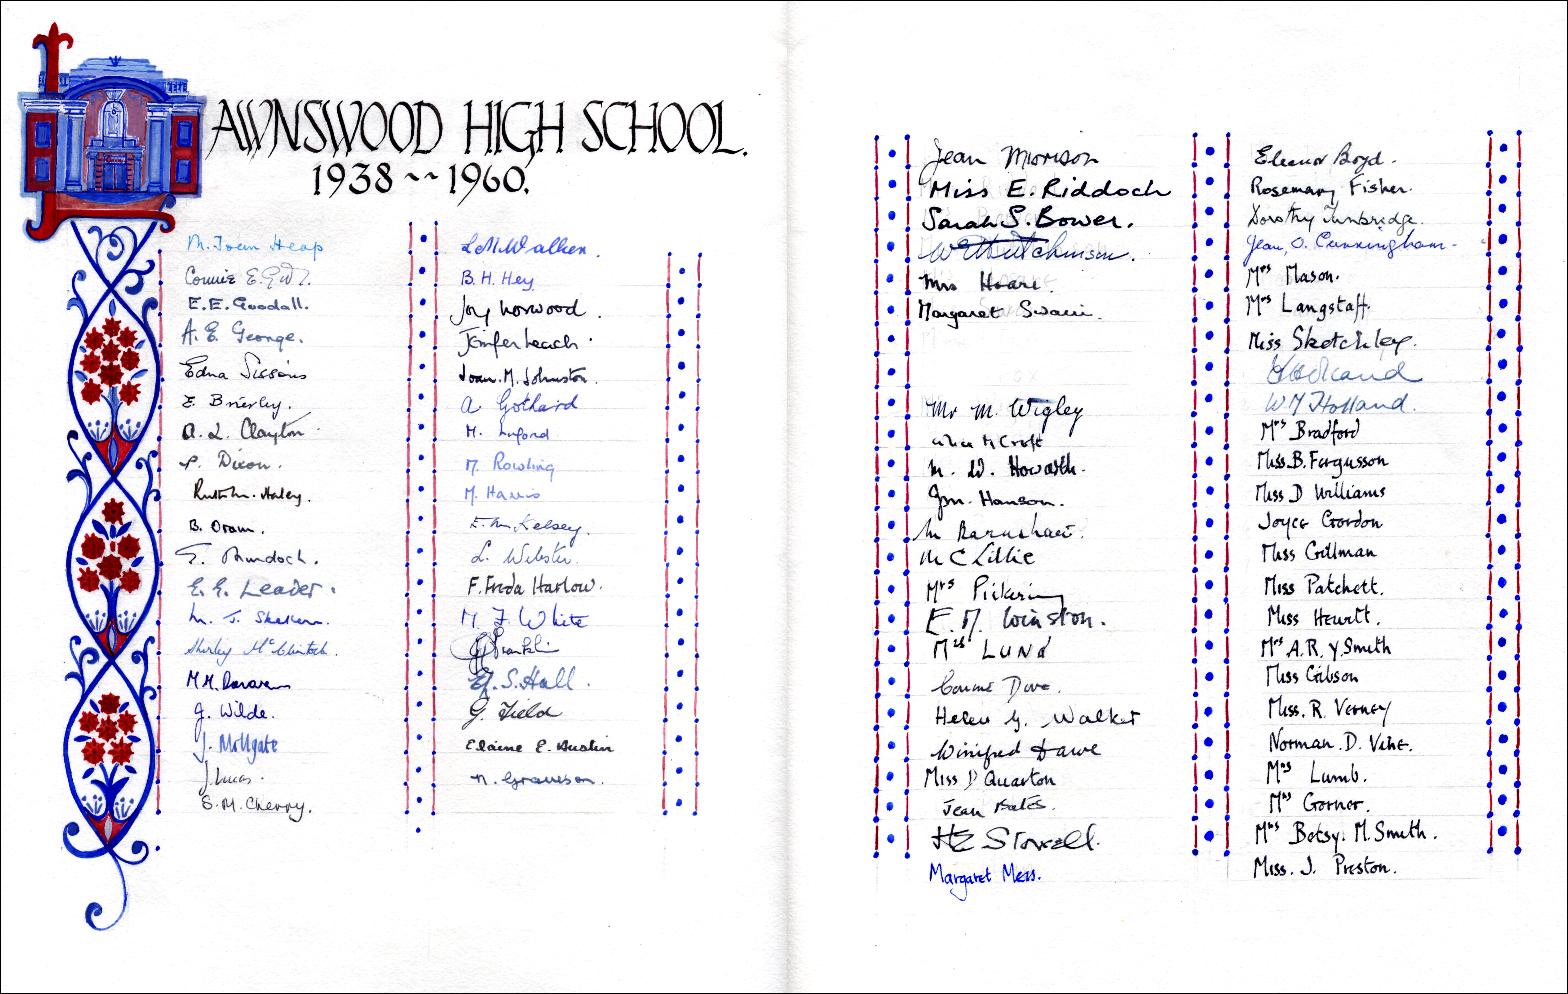 LAWNSWOOD HIGH SCHOOL.
1938~~1960.
M. Joan Heap
Connie E.
E.E. Goodall.
A. E. George.
Edna Sissons
E. Brierley.
A. L. Clayton
P. Dixon.
Ruth M. Haley.
B. Oram.
Murdoch.
E. E. Leader.
M. J.
Shirley McClintock.
M.M.
J. Wilde.
J. Mollgate
J. Lucas.
S. M. Cherry.
L.M. Walker.
B. H. Hey
Joy Norwood.
Jenifer Leach.
Joan. M. Johnston.
A Gothard
M. Luford
M. Rowling
M. Harris
E. M. Kelsey.
L. Webster.
F. Freda Harlow.
M. F. White
Franklin
S. Hall.
G. Field
Elaine E. Austin
N. Graveson.
Jean Morrison
Miss E. Riddoch
Sarah S. Bower.
Hutchinson.
Mrs Hoare.
Margaret Swain.
Mr M. Wigley
Croft
M. W. Howarth.
J.M. Hanson.
M Barnshaw.
M C Lillie
Mrs Pickering
E. M. Winston.
Mrs LUND
Connie Dove.
Helen G. Walker
Winifred Dawe
Miss D Quarton
Jean Bates.
Stowell.
Margaret Mess.
Eleanor Boyd.
Rosemary Fisher.
Dorothy Tunbridge.
Jean, O. Cunningham-
Mrs Mason.
Mrs Langstaff.
Miss Sketchley.
W M Holland.
Mrs Bradford
Miss. B. Fergusson
Miss D Williams
Joyce Gordon
Miss Gillman
Miss Patchett.
Miss Hewitt.
Mrs A.R. Y. Smith
Miss Gibson
Miss. R. Verney
Norman. D. Vine.
Mrs Lumb.
Mrs Gorner.
Mrs Betsy. M. Smith.
Miss. J. Preston.